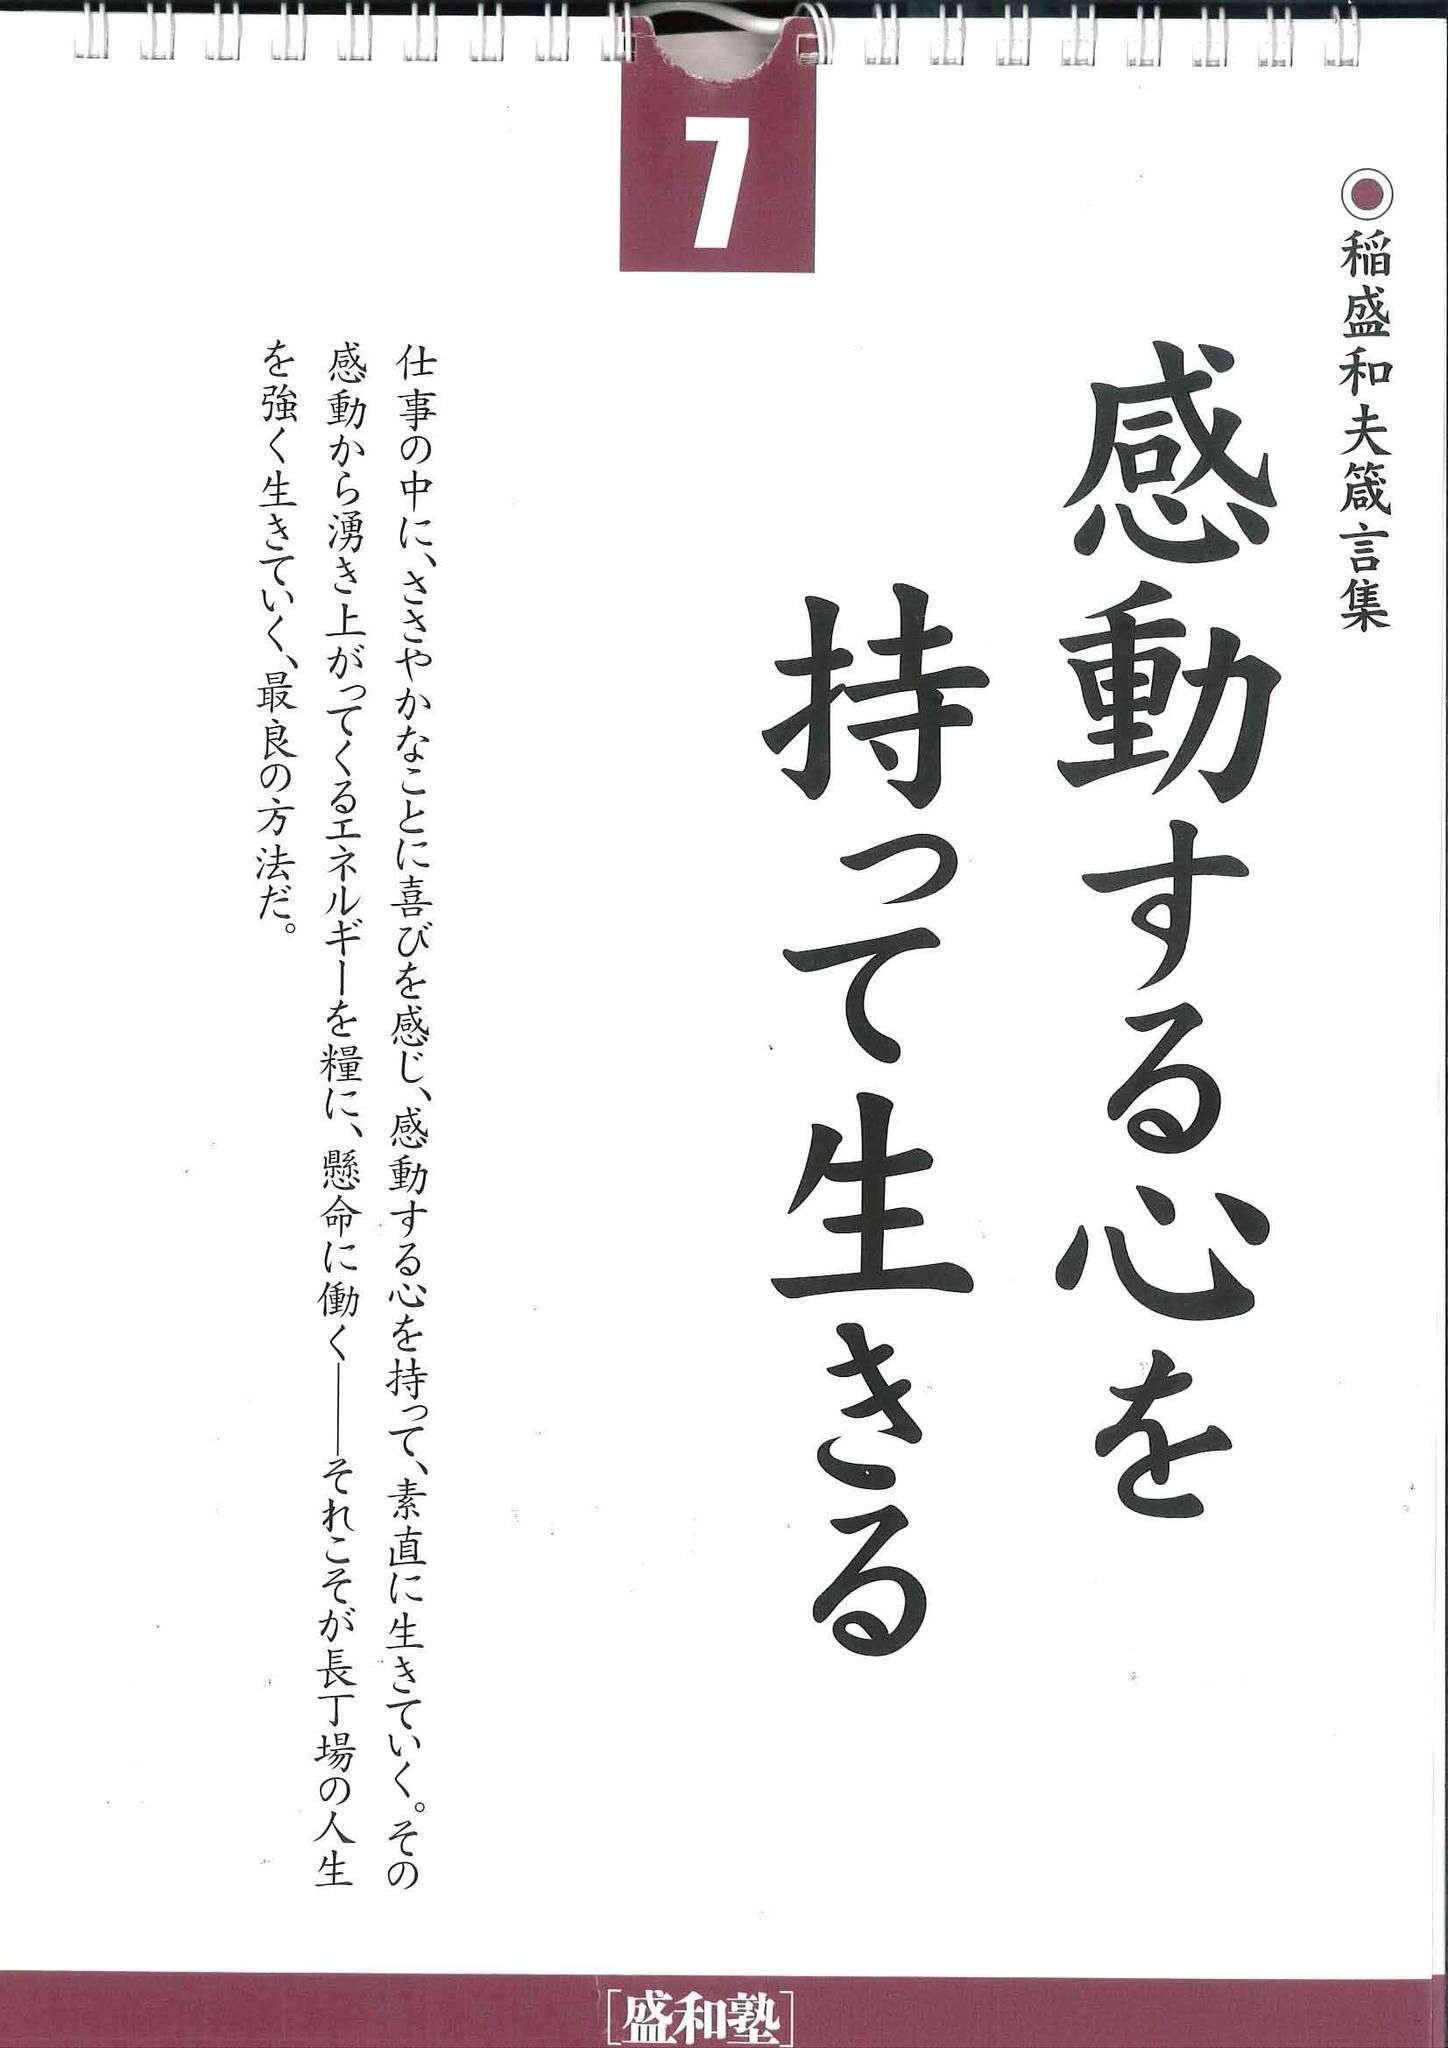 7
稲盛和夫箴言集
感動する心を
持って生きる
仕事の中に、ささやかなことに喜びを感じ、感動する心を持って、素直に生きていく。その
感動から湧き上がってくるエネルギーを糧に、懸命に働く――それこそが長丁場の人生
を強く生きていく、最良の方法だ。
[盛和塾]